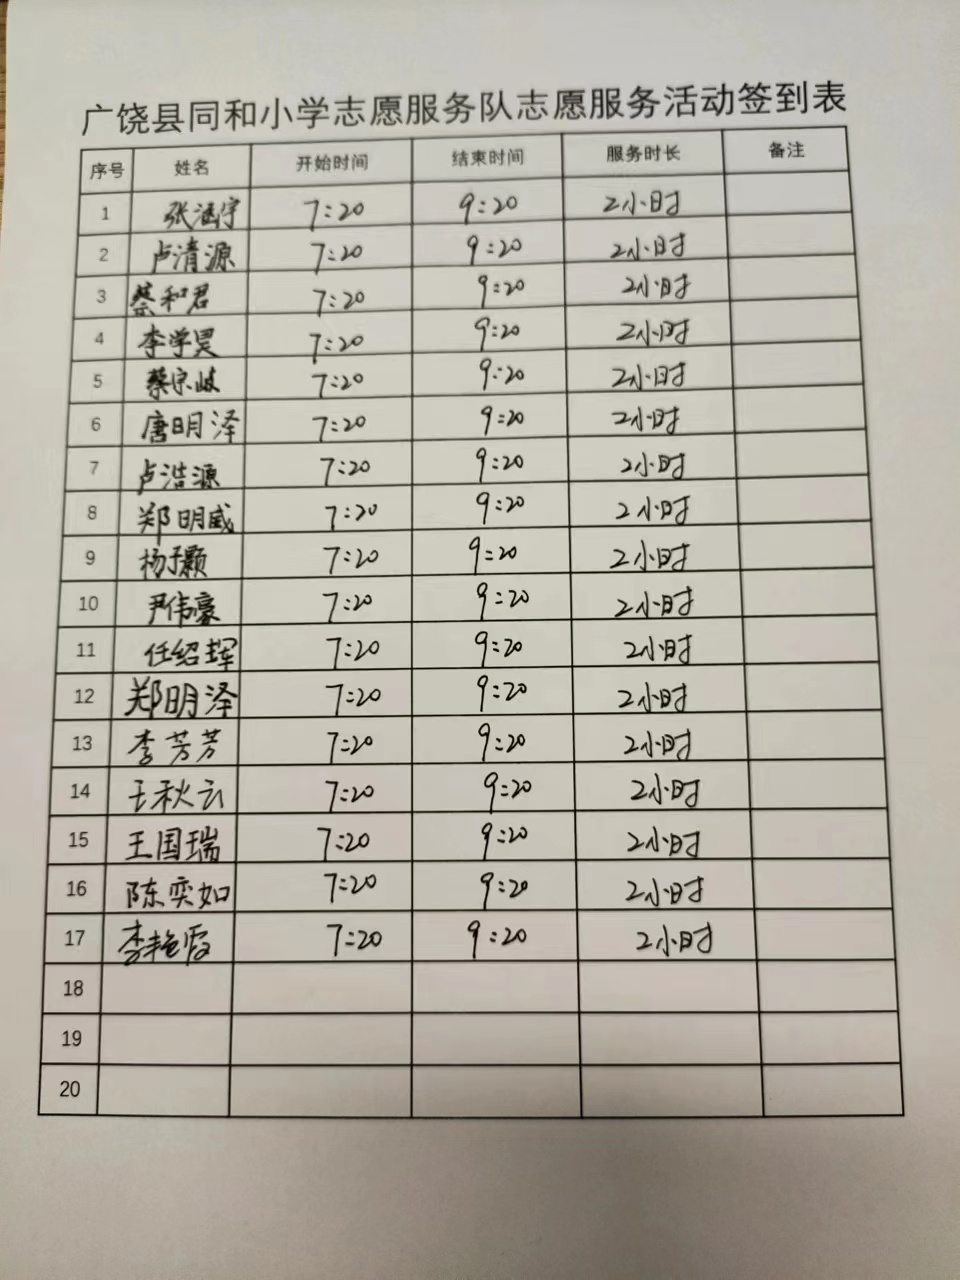 广饶县同和小学志愿服务队志愿服务活动签到表
序号 姓名 开始时间 结束时间 服务时长 备注
1 张涵宇 7:20 9:20 2小时
2 卢清源 7:20 9:20 2小时
3 蔡和君 7:20 9:20 2小时
4 李学昊 7:20 9:20 2小时
5 蔡宗岐 7:20 9:20 2小时
6 唐明泽 7:20 9:20 2小时
7 卢浩源 7:20 9:20 2小时
8 郑明威 7:20 9:20 2小时
9 杨子颢 7:20 9:20 2小时
10 尹伟豪 7:20 9:20 2小时
11 任绍辉 7:20 9:20 2小时
12 郑明泽 7:20 9:20 2小时
13 李芳芳 7:20 9:20 2小时
14 王秋云 7:20 9:20 2小时
15 王国瑞 7:20 9:20 2小时
16 陈奕如 7:20 9:20 2小时
17 李艳霞 7:20 9:20 2小时
18
19
20